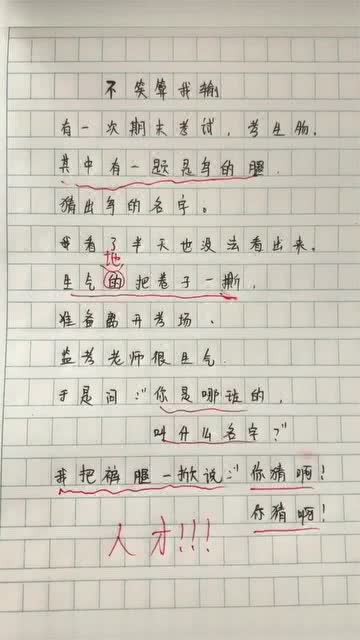 不笑算我输
有一次期末考试，考生物。
其中有一题是鸟的腿，
猜出鸟的名字。
我看了半天也没法看出来。
地
生气的把卷子一撕，
准备离开考场。
监考老师很生气
于是问："你是哪班的，
叫什么名字？"
我把裤腿一掀说："你猜啊！
你猜啊！
人才!!!